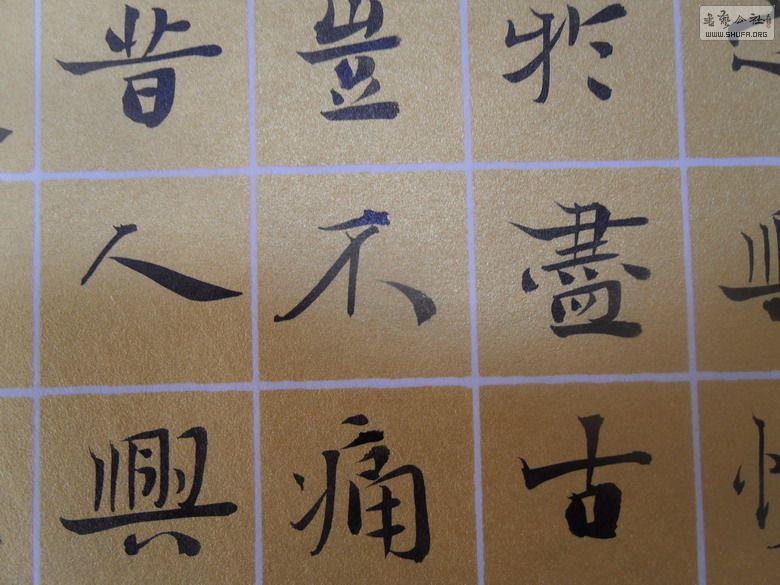 於盡古
豈不痛
昔人興
書藝公社
WWW.SHUFA.ORG